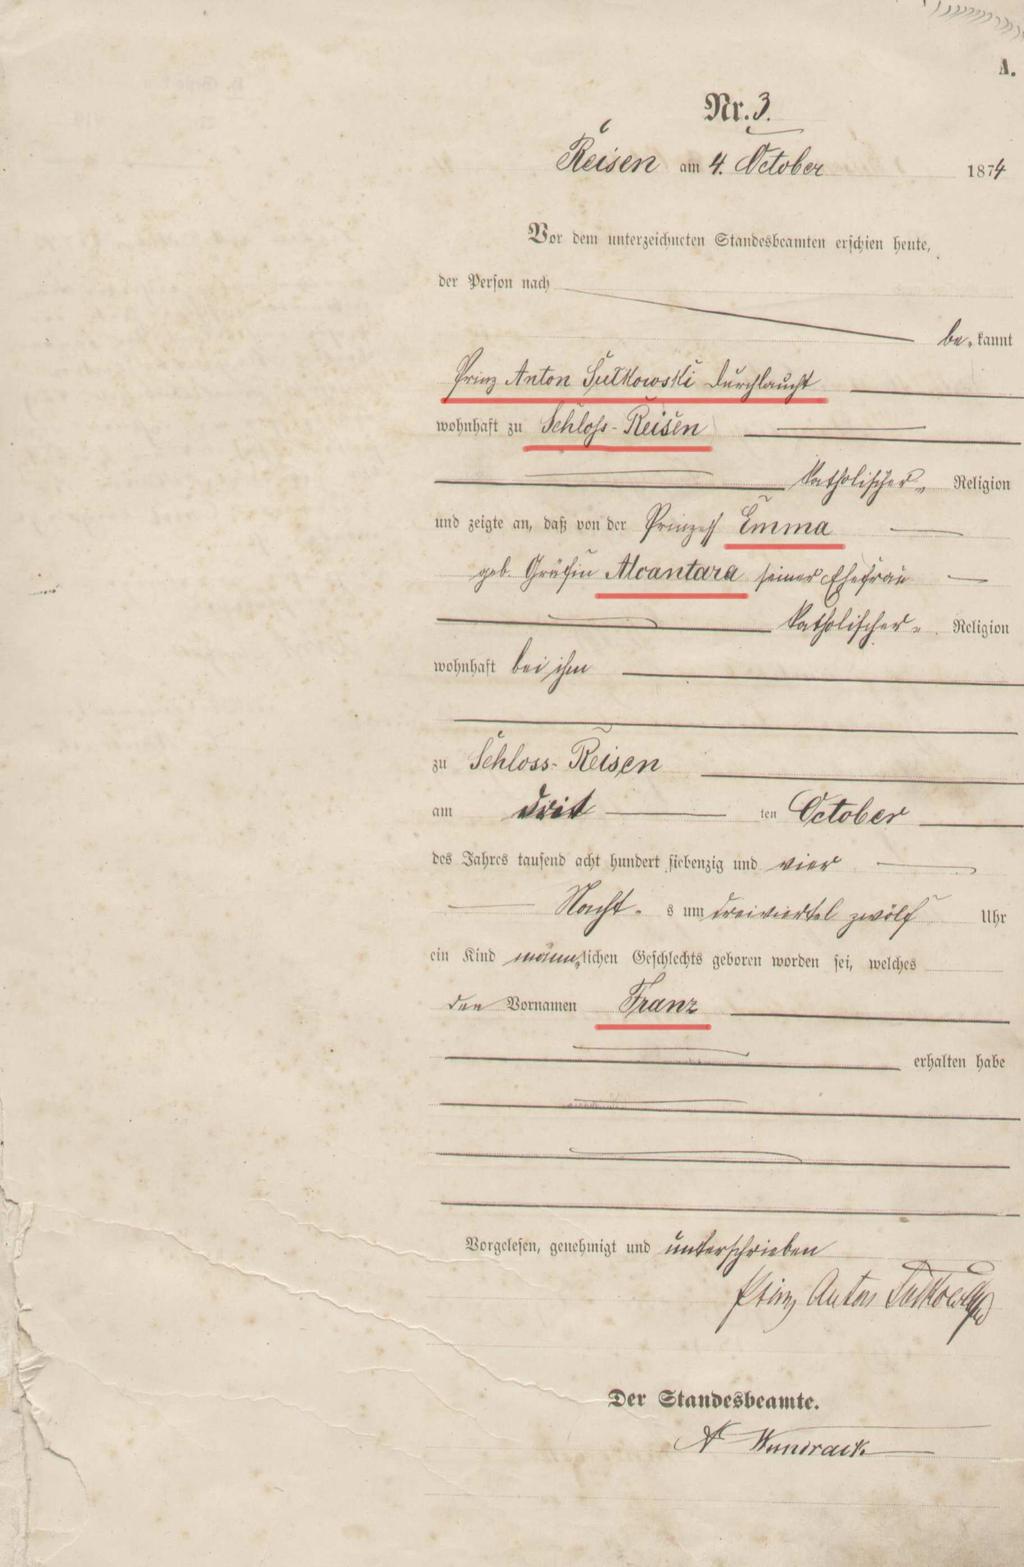 A.
Nr. 3.
Reisen am 4. October 1874
Vor dem unterzeichneten Standesbeamten erschien heute,
der Person nach
be,, kannt
Prinz Anton Sułkowski Durchlaucht
wohnhaft zu Schloss-Reisen
katholischer,, Religion
und zeigte an, daß von der Prinzess Emma
geb. Gräfin Alcantara seiner Ehefrau
katholischer,, Religion
wohnhaft bei ihm
zu Schloss-Reisen
am drit ten October
des Jahres tausend acht hundert siebenzig und vier
Nacht- s um dreiviertel zwölf Uhr
ein Kind männ,,lichen Geschlechts geboren worden sei, welches
den Vornamen Franz
erhalten habe
Vorgelesen, genehmigt und unterschrieben
Prinz Anton Sułkowski
Der Standesbeamte.
Wundrack